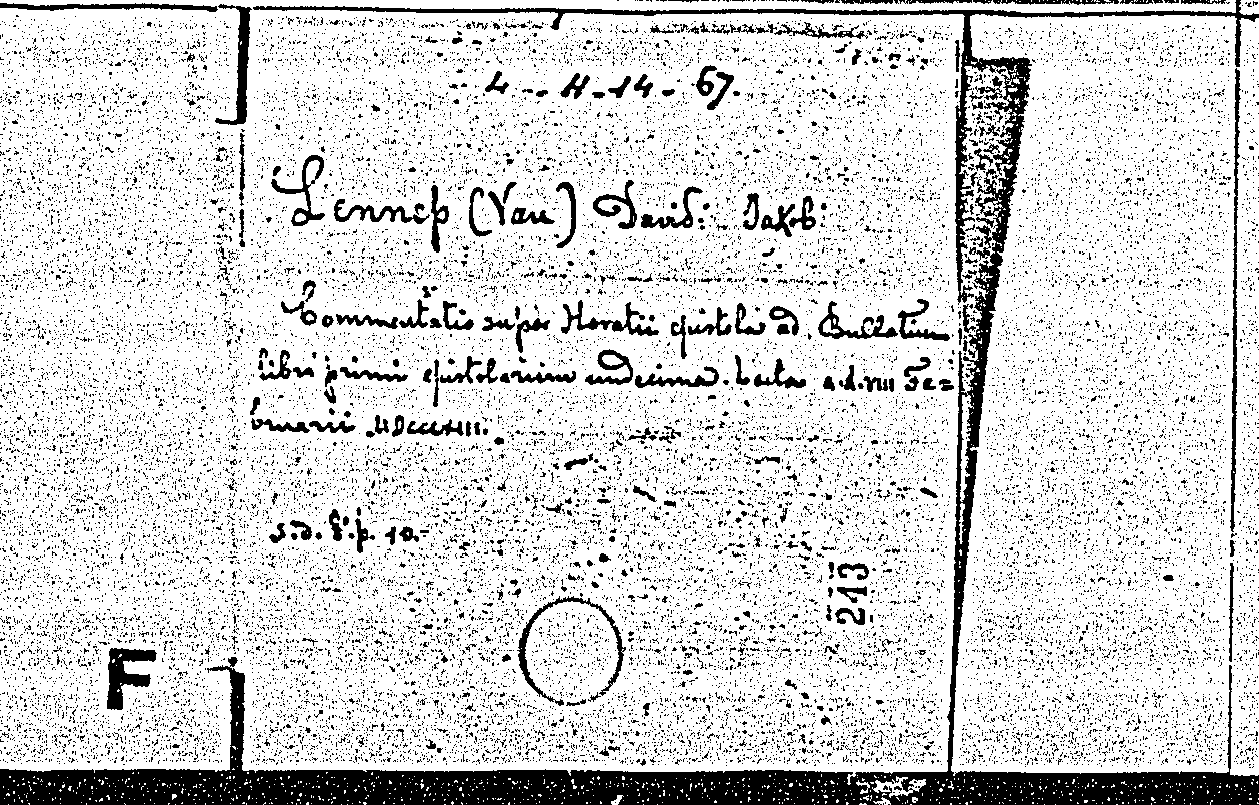 4 - H - 14 - 67.
Lennep (Van) David: Jakob:
Commentatio super Horatii epistola ad Bullatium
libri primi epistolarum undecima. Lecta a.d. VIII Fe=
bruarii
s.d. 8°. p. 10.-
243
F